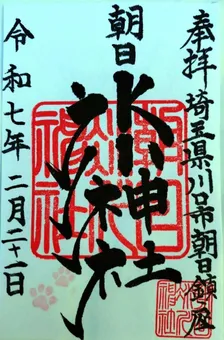 奉拝 埼玉県川口市 朝日鎮座
朝日
氷川神社
令和七年 二月二十二日